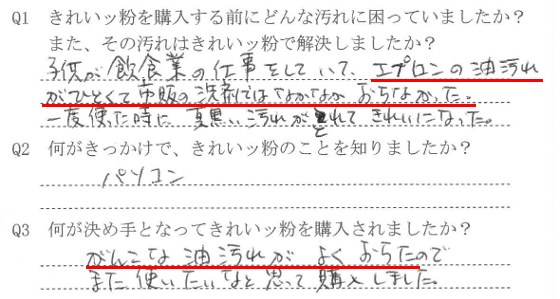 Q1 きれいッ粉を購入する前にどんな汚れに困っていましたか？
また、その汚れはきれいッ粉で解決しましたか？
子供が飲食業の仕事をしていて、エプロンの油汚れ
がひどくて市販の洗剤ではなかなかおちなかった。
一度使った時に真黒い汚れがとれてきれいになった。
Q2 何がきっかけで、きれいッ粉のことを知りましたか？
パソコン
Q3 何が決め手となってきれいッ粉を購入されましたか？
がんこな油汚れがよくおちたので
また使いたいなと思って購入しました。